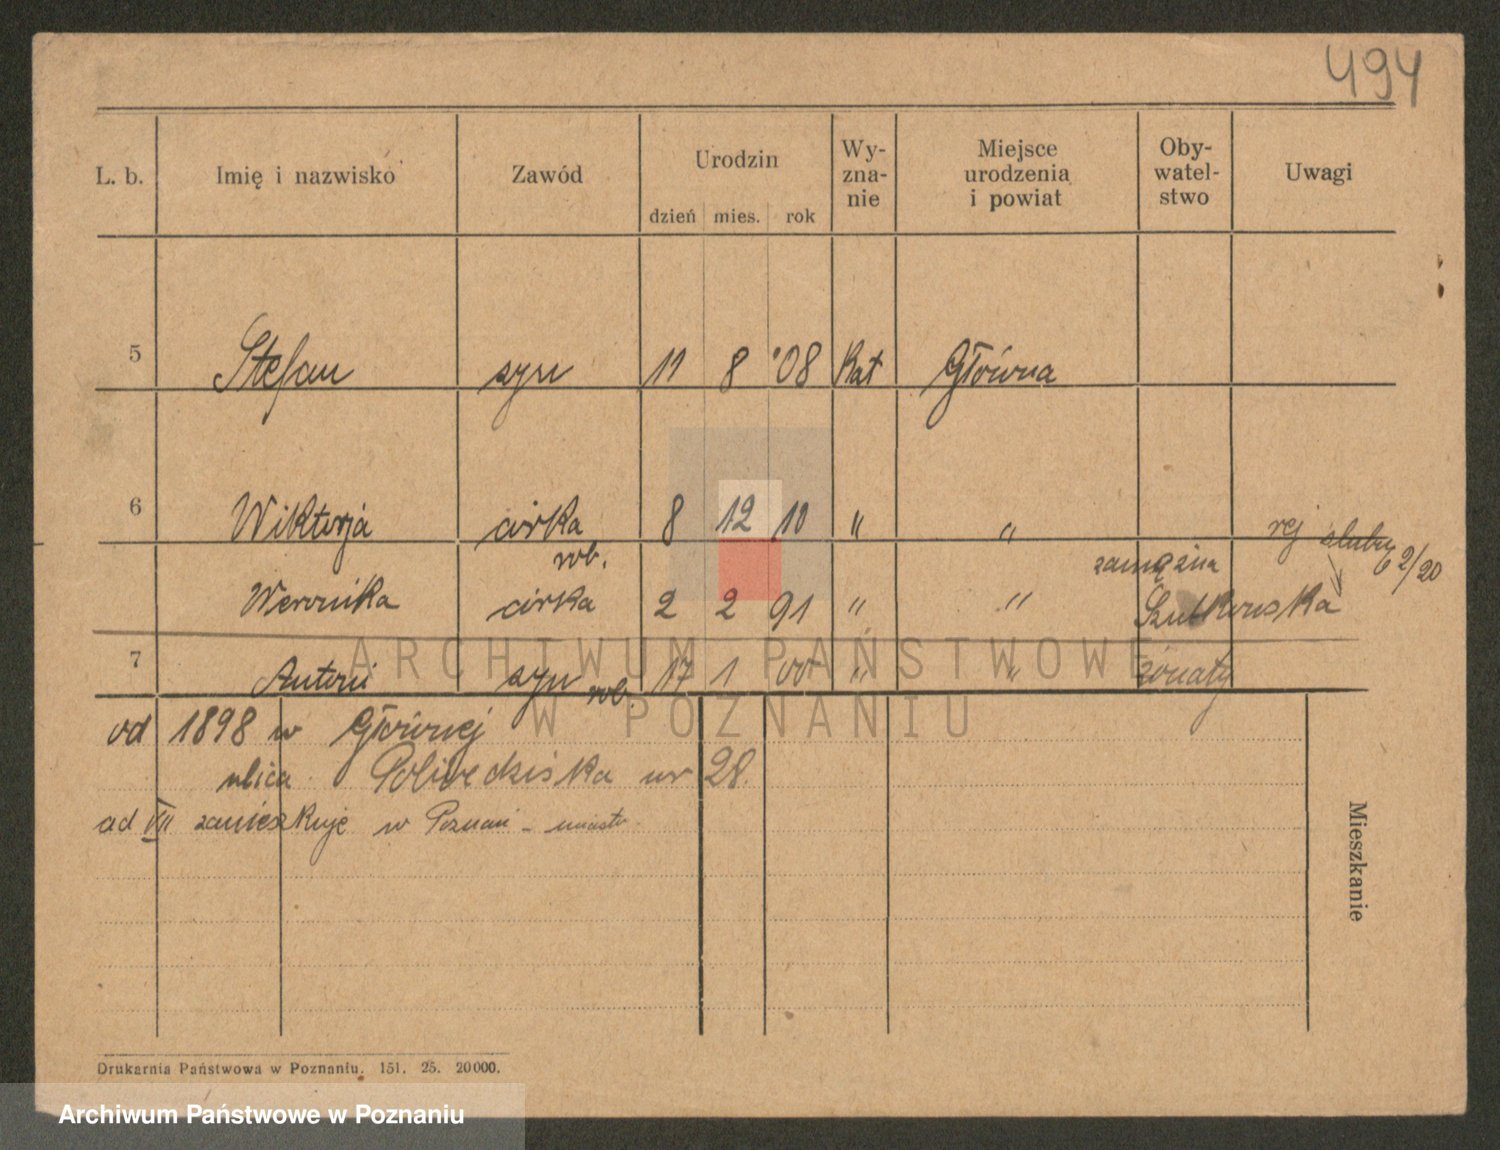 494
L. b. Imię i nazwisko Zawód Urodzin dzień mies. rok Wy-zna-nie Miejsce urodzenia i powiat Oby-watel-stwo Uwagi
5 Stefan syn 11 8 '08 kat Główna
6 Wiktorja córka 8 12 10 " " rej ślubu 2/20
rob. zamężna
Weronika córka 2 2 91 " " Szulkowska
7 Antoni syn rob. 17 1 00 " " żonaty
ARCHIWUM PAŃSTWOWE
W POZNANIU
od 1898 w Głównej
ulica Pobiedziska nr 28.
od VII zamieszkuje w Poznań - miasto
Mieszkanie
Drukarnia Państwowa w Poznaniu. 151. 25. 20000.
Archiwum Państwowe w Poznaniu